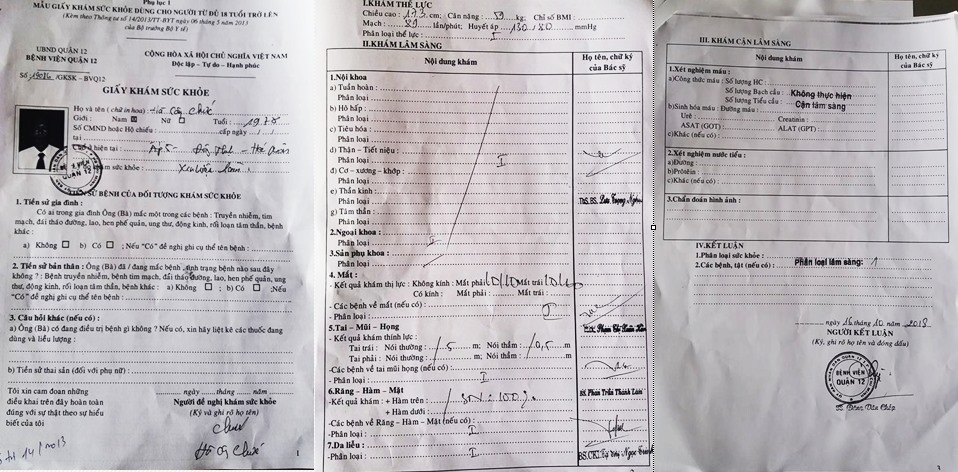 Phụ lục 1
MẪU GIẤY KHÁM SỨC KHỎE DÙNG CHO NGƯỜI TỪ ĐỦ 18 TUỔI TRỞ LÊN
(Kèm theo Thông tư số 14/2013/TT-BYT ngày 06 tháng 5 năm 2013
của Bộ trưởng Bộ Y tế)
UBND QUẬN 12
BỆNH VIỆN QUẬN 12
CỘNG HÒA XÃ HỘI CHỦ NGHĨA VIỆT NAM
Độc lập - Tự do - Hạnh phúc
Số /GKSK - BVQ12
GIẤY KHÁM SỨC KHỎE
Họ và tên (chữ in hoa):
Giới: Nam Nữ Tuổi: 1978
Số CMND hoặc Hộ chiếu: cấp ngày / /
tại
Chỗ ở hiện tại: Ấp 5 -
khám sức khỏe:
BỆNH VIỆN
QUẬN 12
TIỀN SỬ BỆNH CỦA ĐỐI TƯỢNG KHÁM SỨC KHỎE
1. Tiền sử gia đình:
Có ai trong gia đình Ông (Bà) mắc một trong các bệnh: Truyền nhiễm, tim
mạch, đái tháo đường, lao, hen phế quản, ung thư, động kinh, rối loạn tâm thần, bệnh
khác:
a) Không b) Có ; Nếu "Có" đề nghị ghi cụ thể tên bệnh:
2. Tiền sử bản thân: Ông (Bà) đã / đang mắc bệnh, tình trạng bệnh nào sau đây
không?: Bệnh truyền nhiễm, bệnh tim mạch, đái tháo đường, lao, hen phế quản, ung
thư, động kinh, rối loạn tâm thần, bệnh khác: a) Không ; b) Có ;Nếu
"Có" đề nghị ghi cụ thể tên bệnh:
3. Câu hỏi khác (nếu có):
a) Ông (Bà) có đang điều trị bệnh gì không? Nếu có, xin hãy liệt kê các thuốc đang
dùng và liều lượng:
b) Tiền sử thai sản (đối với phụ nữ):
Tôi xin cam đoan những
điều khai trên đây hoàn toàn
đúng với sự thật theo sự hiểu
biết của tôi
ngày ...... tháng ...... năm
Người đề nghị khám sức khỏe
(Ký và ghi rõ họ tên)
1
I.KHÁM THỂ LỰC
Chiều cao: 173 cm; Cân nặng: 59 kg; Chỉ số BMI:
Mạch: 89 lần/phút; Huyết áp 130/80 mmHg
Phân loại thể lực: I
II.KHÁM LÂM SÀNG
Nội dung khám
Họ tên, chữ ký
của Bác sỹ
1.Nội khoa
a) Tuần hoàn:
Phân loại
b) Hô hấp:
Phân loại
c) Tiêu hóa:
Phân loại
d) Thận - Tiết niệu: I
Phân loại
đ) Cơ - xương - khớp:
Phân loại
e) Thần kinh:
Phân loại
g) Tâm thần:
Phân loại
2.Ngoại khoa:
Phân loại
3.Sản phụ khoa:
Phân loại
4. Mắt:
- Kết quả khám thị lực: Không kính: Mắt phải 10/10 Mắt trái: 10/10
Có kính: Mắt phải: Mắt trái:
- Các bệnh về mắt (nếu có):
- Phân loại: I
5.Tai - Mũi - Họng
- Kết quả khám thính lực:
Tai trái: Nói thường: 5 m; Nói thầm: 0,5 m
Tai phải: Nói thường: m; Nói thầm: m
-Các bệnh về tai mũi họng (nếu có):
- Phân loại: I
6.Răng - Hàm - Mặt
-Kết quả khám: + Hàm trên: 100%
+ Hàm dưới:
-Các bệnh về Răng - Hàm - Mặt (nếu có)
-Phân loại: I
BS. Phan Trần Thanh Lam
7.Da liễu:
-Phân loại: I
III. KHÁM CẬN LÂM SÀNG
Nội dung khám
Họ tên, chữ ký
của Bác sỹ
1.Xét nghiệm máu:
a)Công thức máu: Số lượng HC:
Số lượng Bạch cầu: Không thực hiện
Số lượng Tiểu cầu: Cận lâm sàng
b)Sinh hóa máu: Đường máu:
Urê: Creatinin:
ASAT (GOT): ALAT (GPT):
c)Khác (nếu có):
2.Xét nghiệm nước tiểu:
a)Đường:
b)Prôtêin:
c)Khác (nếu có):
3.Chẩn đoán hình ảnh:
IV.KẾT LUẬN
1.Phân loại sức khỏe:
Phân loại lâm sàng: 1
2.Các bệnh, tật (nếu có):
ngày 16 tháng 10 năm 2018
NGƯỜI KẾT LUẬN
(Ký, ghi rõ họ tên và đóng dấu)
BỆNH VIỆN
QUẬN 12